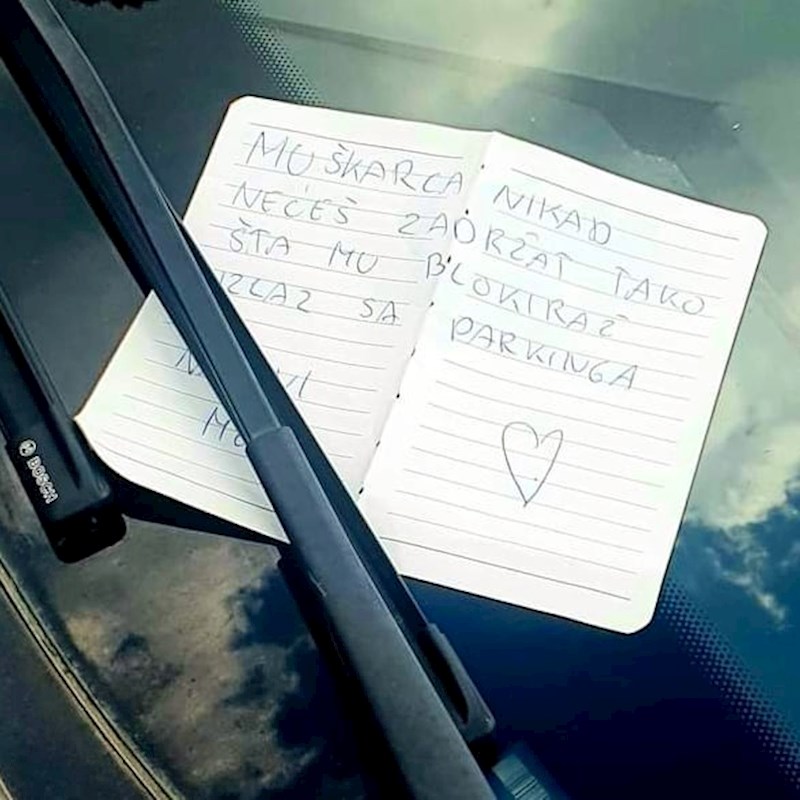 MUŠKARCA NIKAD
NEĆEŠ ZADRŽAT TAKO
ŠTA MU BLOKIRAŠ
IZLAZ SA PARKINGA
BOSCH